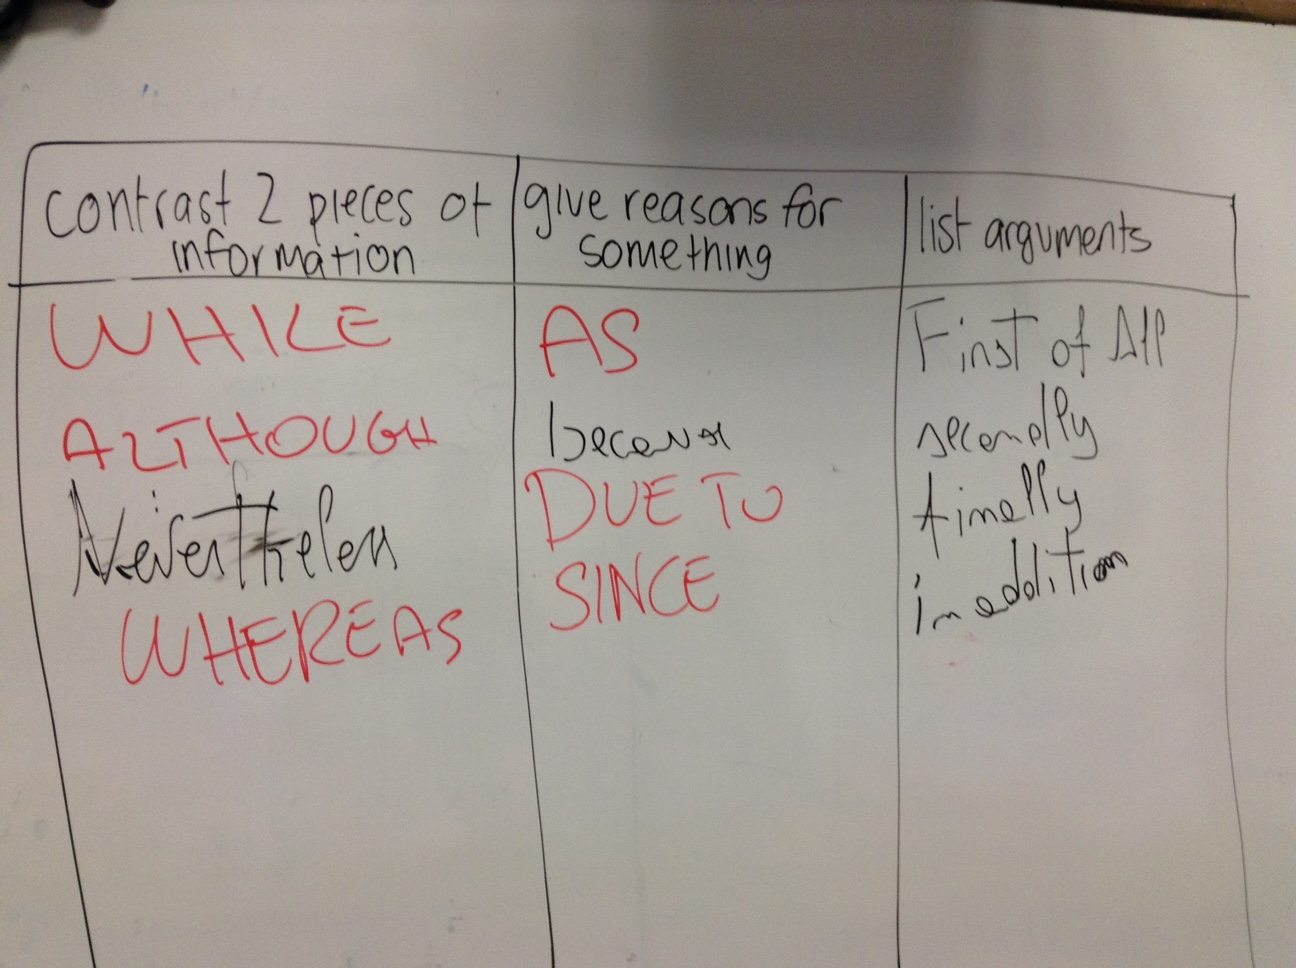 contrast 2 pieces of
information
give reasons for
something
list arguments
WHILE
ALTHOUGH
Nevertheless
WHEREAS
AS
because
DUE TO
SINCE
First of All
secondly
finally
in addition